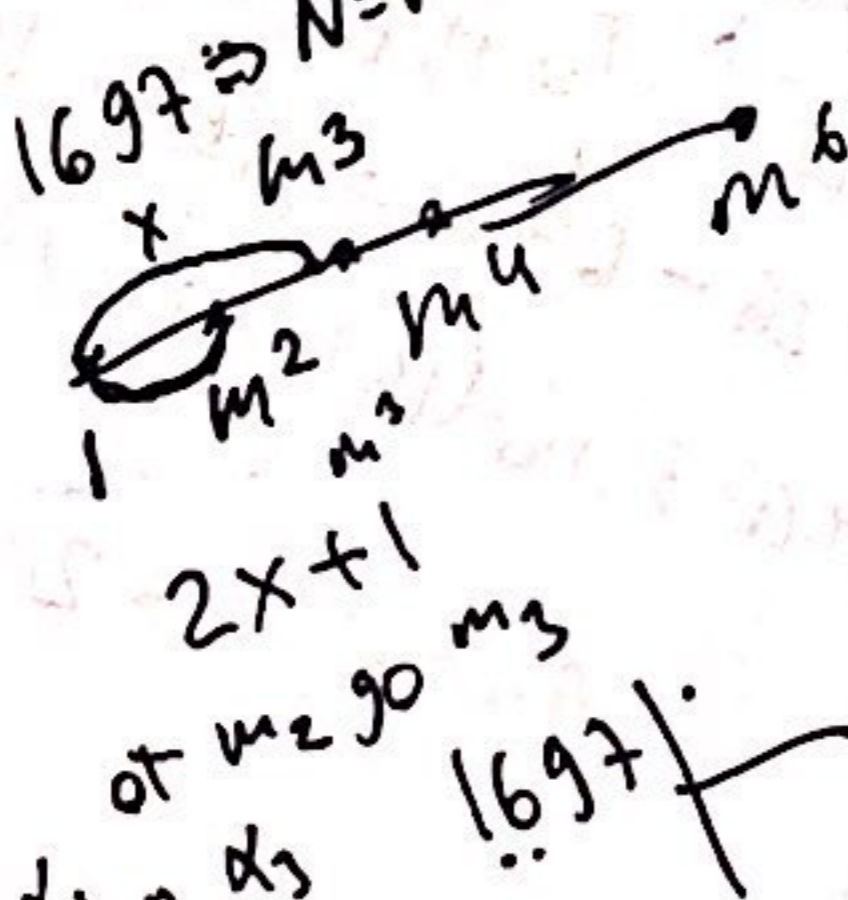 1697 ⇒ N =
x m³
m⁶
m⁴
1 m²
m³
2x+1
от m₂ до m₃
1697
α₃